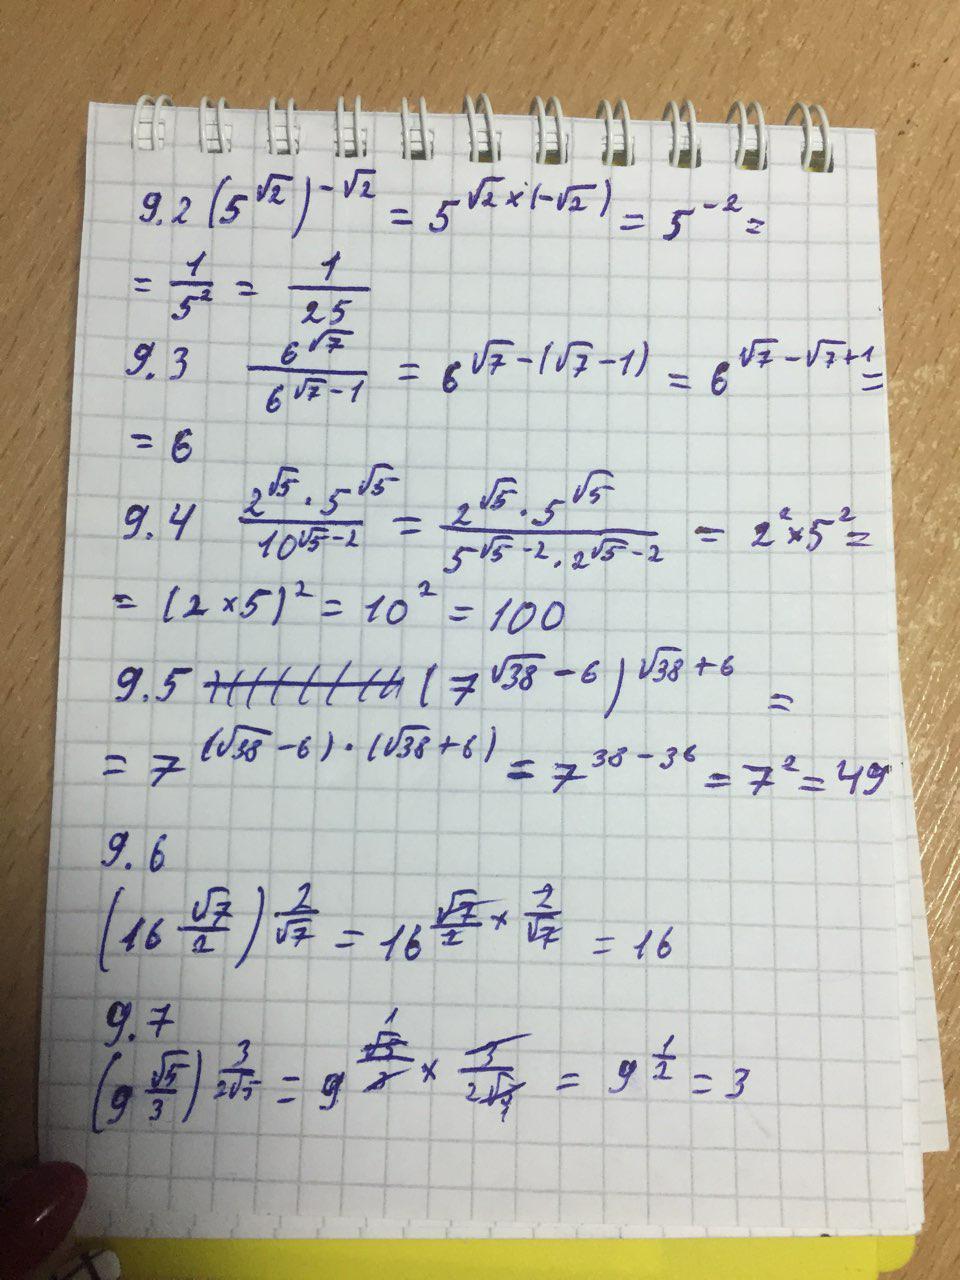 9.2 (5^√2)^-√2 = 5^√2×(-√2) = 5^-2 =
= 1/5^2 = 1/25
9.3 6^√7/6^(√7-1) = 6^√7-(√7-1) = 6^√7-√7+1 =
= 6
9.4 2^√5·5^√5/10^(√5-2) = 2^√5·5^√5/5^(√5-2)·2^(√5-2) = 2^2×5^2=
= (2×5)^2 = 10^2 = 100
9.5 (7^√38-6)^√38+6 =
= 7^(√38-6)·(√38+6) = 7^38-36 = 7^2 = 49
9.6
(16^√7/2)^2/√7 = 16^√7/2 × 2/√7 = 16
9.7
(9^√5/3)^3/2√5 = 9^√5/3 × 3/2√5 = 9^1/2 = 3